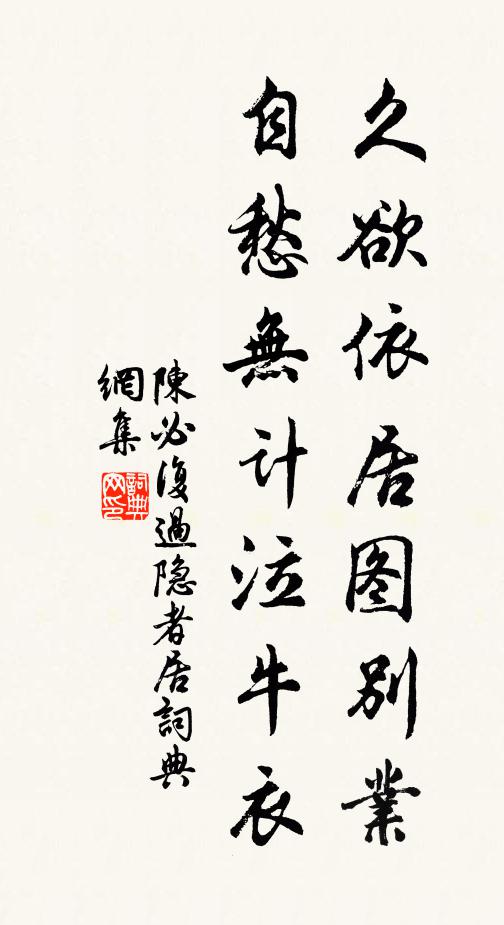 久欲依居图别業
自愁無计泣牛衣
陳必復過隐者居詞典
網集
詞典
网印